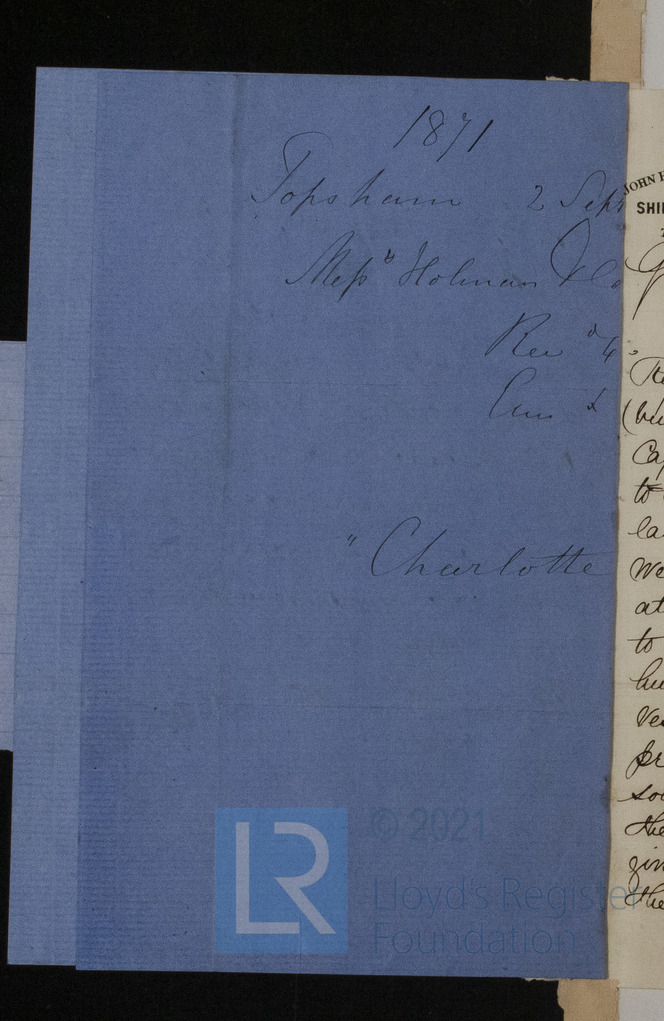 1871
Topsham 2 Sept
Messrs Holman & Co
Rec d 4
"Charlotte
JOHN
SHI
Ca
to
la
We
at
to
Ve
pr
the
the
LR
© 2021
Lloyd's Register
Foundation